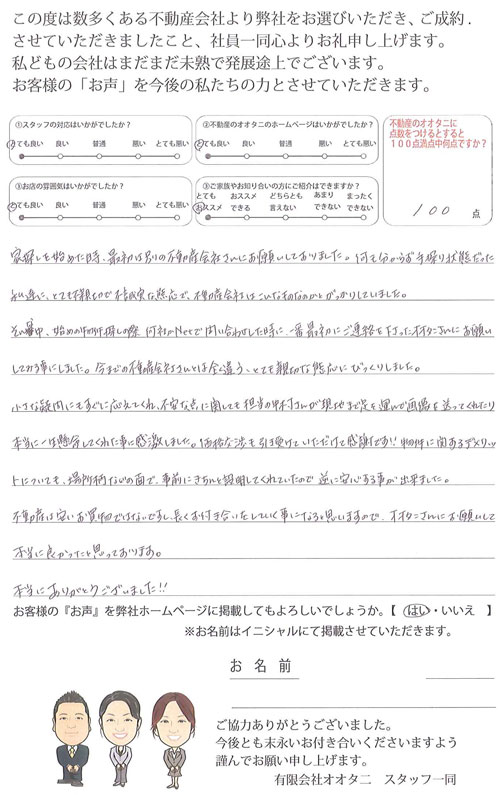 この度は数多くある不動産会社より弊社をお選びいただき、ご成約.
させていただきましたこと、社員一同心よりお礼申し上げます。
私どもの会社はまだまだ未熟で発展途上でございます。
お客様の「お声」を今後の私たちの力とさせていただきます。
①スタッフの対応はいかがでしたか？
とても良い 良い 普通 悪い とても悪い
②不動産のオオタニのホームページはいかがでしたか？
とても良い 良い 普通 悪い とても悪い
③お店の雰囲気はいかがでしたか？
とても良い 良い 普通 悪い とても悪い
③ご家族やお知り合いの方にご紹介はできますか？
とても おススメ どちらとも あまり まったく
おススメ できる 言えない できない できない
不動産のオオタニに
点数をつけるとすると
100点満点中何点ですか？
100 点
家探しを始めた時、最初は別の不動産会社さんにお願いしておりました。何も分からず手探り状態だった
私達に、とても不親切で不誠実な態応で、不動産会社はこんなものなのかとがっかりしていました。
そんな中、始めの物件探しの際 何社かNetで問い合わせした時に、一番最初にご連絡を下さったオオタニさんにお願い
してみる事にしました。今までの不動産会社さんとは全く違う、とても親切な態応にびっくりしました。
小さな疑問にもすぐに応えてくれ、不安な点に関しても担当の中村さんが現地まで足を運んで画像を送ってくれたり
本当に一生懸命してくれた事に感激しました。価格交渉も引き受けていただけて感謝です!! 物件に関するデメリッ
トについても、場所柄などの面で、事前にきちんと説明してくれていたので 逆に安心する事が出来ました。
不動産は安いお買物ではないですし、長くお付き合いをしていく事になると思いますので、オオタニさんにお願いして
本当に良かったと思っております。
本当にありがとうございました!!
お客様の『お声』を弊社ホームページに掲載してもよろしいでしょうか。【 はい・いいえ 】
※お名前はイニシャルにて掲載させていただきます。
お 名 前
ご協力ありがとうございました。
今後とも末永いお付き合いくださいますよう
謹んでお願い申し上げます。
有限会社オオタニ スタッフ一同